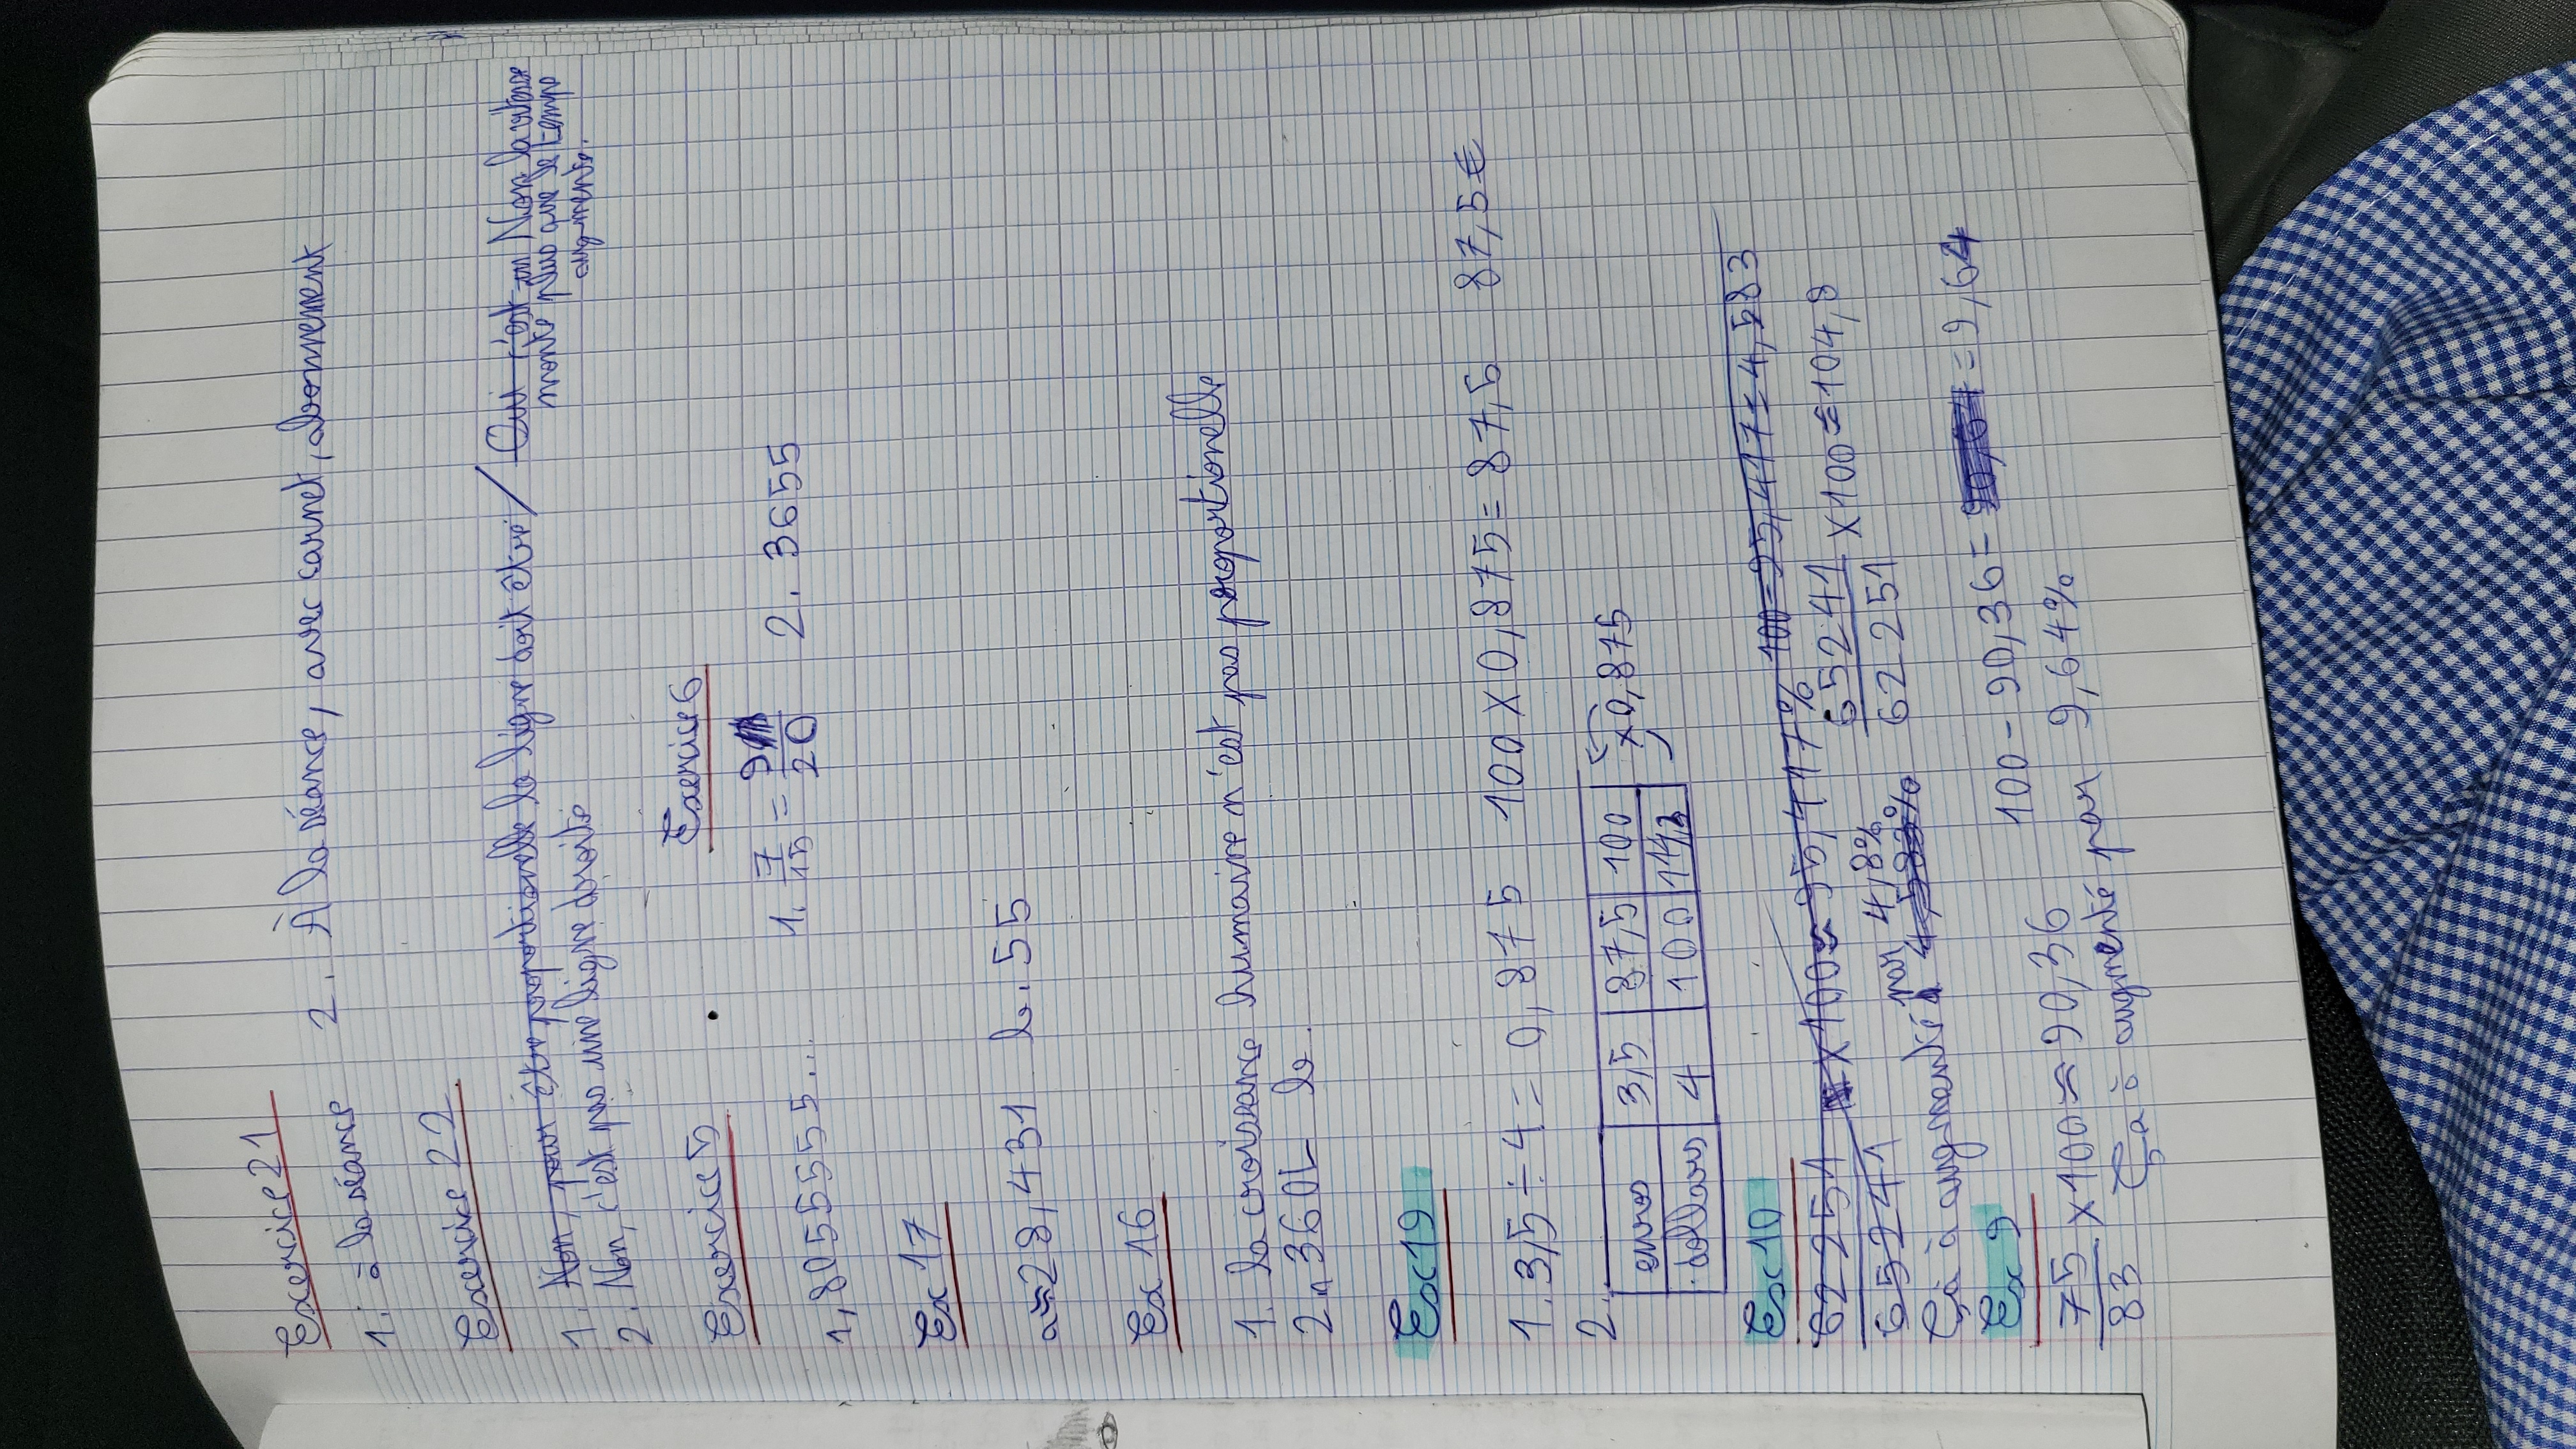 Exercice 21
1. à la séance 2. À la séance, avec carnet, abonnement
Exercice 22
1. Non, pour être proportionnelle la ligne doit être / Oui c'est Non la vitesse
monte plus que le temps
augmente.
2. Non, c'est pas une ligne droite
Exercice 5 Exercice 6
1,80555555... 1. 7/15 = 9/20 2. 36655
Ex 17
a≈28,431 b. 55
Ex 16
1. la croissance humaine n'est pas proportionelle
2 a 360L b.
Ex 19
1. 3,5 ÷ 4 = 0,875 100 x 0,875 = 87,5 87,5€
2. euros 3,5 87,5 100
dollars 4 100 114,2 x0,875
Ex 10
62 251/65 241 x100≈95,417% 100-95,417=4,583
65 241/62 251 x100≈104,8
Ça à augmenté par 4,8% 4,583%
Ex 9
75/83 x100≈90,36 100-90,36= 9,64
Ça à augmenté par 9,64%